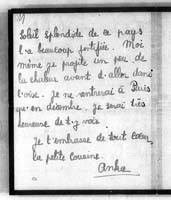 Soleil splendide de ce pays
l'a beaucoup fortifiée. Moi
même je profite un peu de
la chaleur avant d'aller dans
l'oise. Je ne rentrerai à Paris
qu'en décembre. Je serai très
heureuse de t-y voir.
Je t'embrasse de tout cœur,
ta petite cousine.
Anka